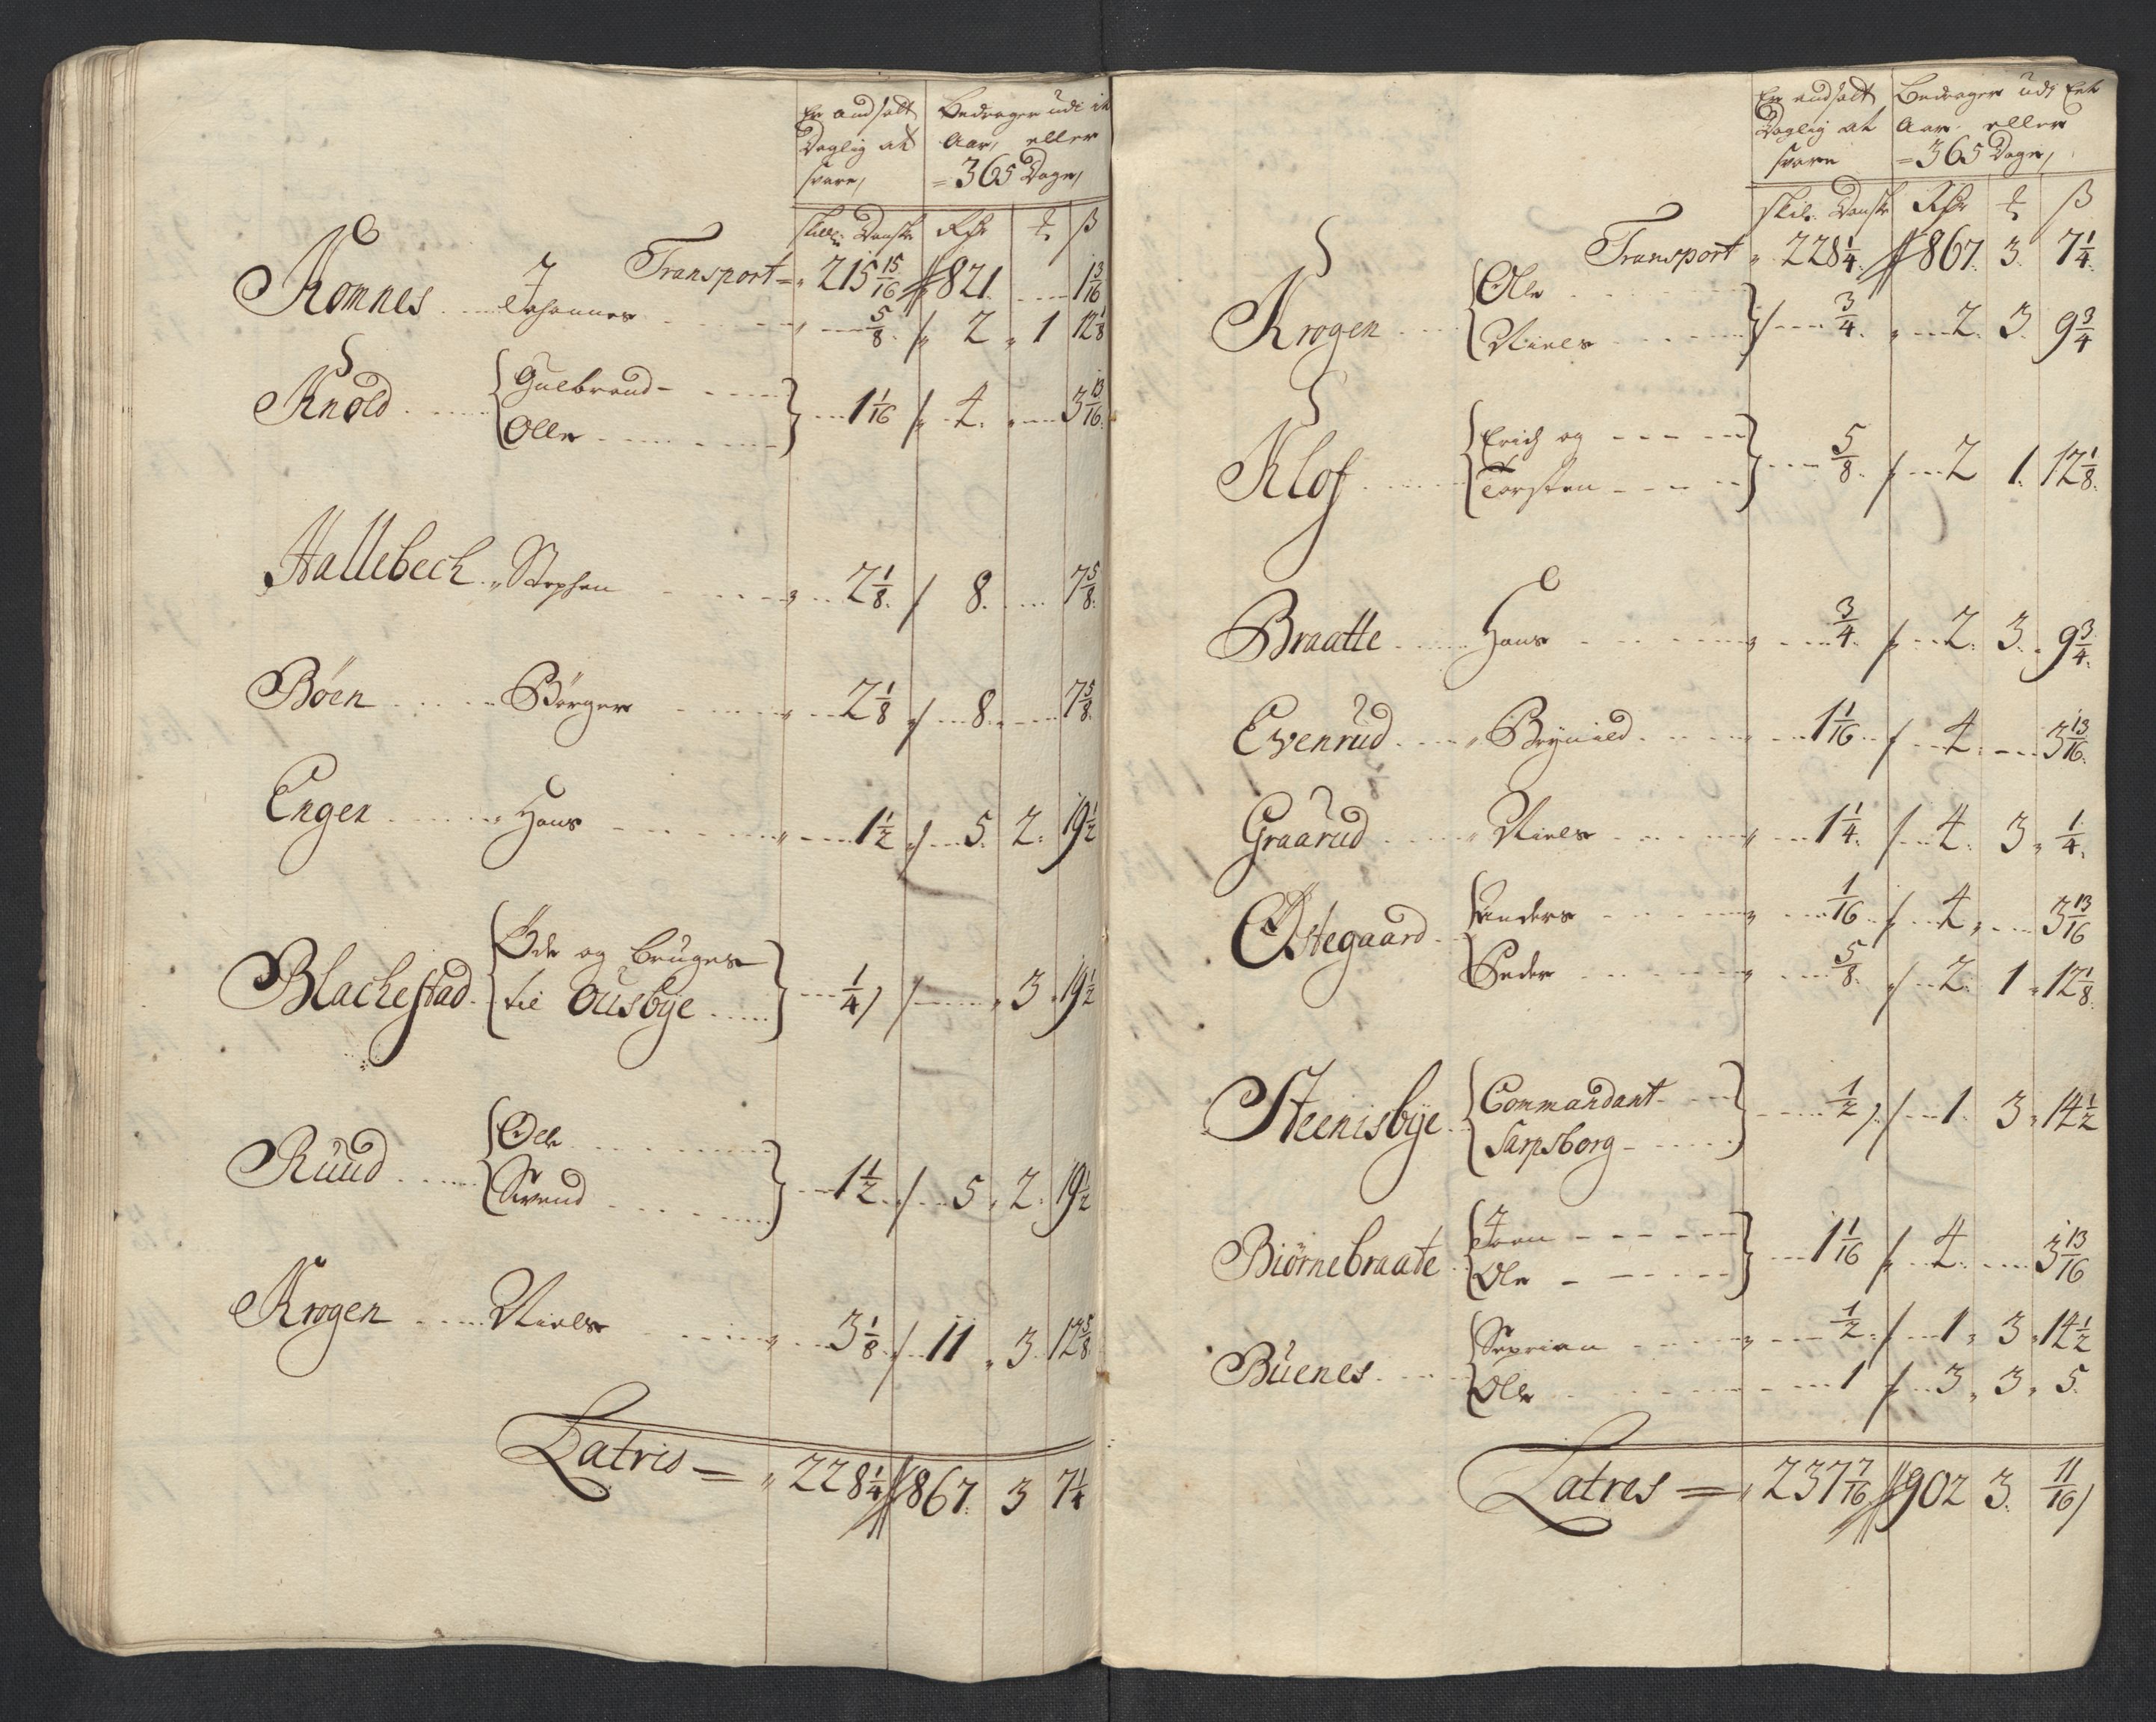 Er andsatt Bedrager udi it
Daglig at Aar, eller
svare, = 365 Dage,
skill: Danske Rdr ƶ β
Transport = 215 15/16 821 1 3/16
Komnes Johannes 5/8 2 1 12 1/8
Knold Gulbrand
Olle 1 1/16 4 3 13/16
Hallebech Stephen 2 1/8 8 7 5/8
Böen Börger 2 1/8 8 7 5/8
Engen Hans 1 1/2 5 2 19 1/2
Blachestad Öde og bruges
til Ousbÿe 1/4 3 19 1/2
Ruud Ole
Svend 1 1/2 5 2 19 1/2
Krogen Niels 3 1/8 11 3 12 5/8
Latris = 228 1/4 867 3 7 1/4
Er andsatt Bedrager udi Eet
Daglig at Aar eller
svare = 365 Dage,
skil: Danske Rdr ƶ β
Transport 228 1/4 867 3 7 1/4
Krogen Olle
Niels 3/4 2 3 9 3/4
Klof Erich og
Torsten 5/8 2 1 12 1/8
Braatte Hans 3/4 2 3 9 3/4
Evenrud Brynild 1 1/16 4 3 13/16
Graarud Niels 1 1/4 4 3 1/4
Østegaard Anders 1/16 4 3 13/16
Peder 5/8 2 1 12 1/8
Steenisbÿe Commandant
Sarpsborg 1/2 1 3 14 1/2
Biörnebraate Joen
Ole 1 1/16 4 3 13/16
Buenes 1/2 1 3 14 1/2
Ole 1 3 3 5
Latres = 237 7/16 902 3 11/16